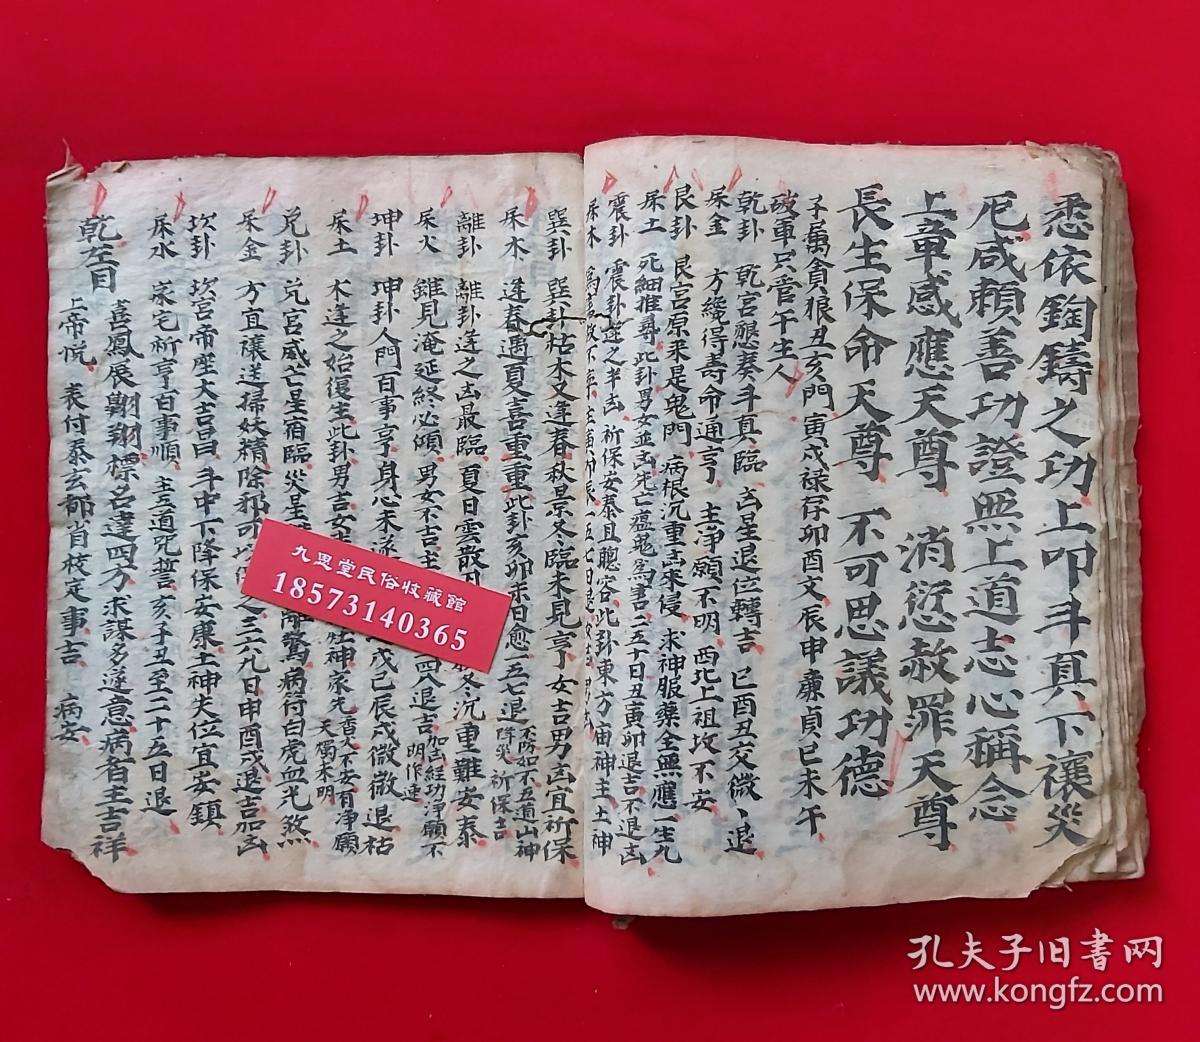 悉依鞫鑄之功上叩斗真下禳災
厄咸賴善功證無上道志心稱念
上章感應天尊 消愆赦罪天尊
長生保命天尊 不可思議功德
子屬貪狼丑亥門 寅戌祿存卯酉文 辰申廉貞巳未午
破軍只管午生人
乾卦 乾宮懇奏斗真臨 凶星退位轉吉 巳酉丑交微 退
屎金 方纔得壽命通亨 主净願不明 西北上祖坟不安
艮卦 艮宮原来是鬼門 病根沉重凶来侵 求神服藥全無應 一生九
屎土 死細推尋 此卦男女並凶死亡瘟鬼為害 二五十日丑寅卯退吉不退凶
震卦 震卦逢之半凶 祈保安泰且聽容 此卦東方宙神主土神
屎木
巽卦 巽卦枯木又逢春 秋景冬臨未見亨 女吉男凶宜祈保
屎木 逢春遇夏喜重重 此卦亥卯未日愈 二五七退 不防如不五道山神 降災 祈保吉
離卦 離卦逢之凶最臨 夏日雲散 冬沉重難安泰
屎火 雖見淹延終必傾 男女不吉主 四八退吉 加吉经功净願不明作速
坤卦 坤卦人門百事亨 身心未 戊己辰戌微微退枯
屎土 木逢之始復生 此卦男吉女 神家先香火不安有净願 天獨未明
兌卦 兌宮威亡星宿臨 災星 驚病符白虎血光煞
屎金 方宜讓送掃妖精 除邪可 之三六九日申酉戌退吉加凶
坎卦 坎宮帝座大吉昌 斗中下降保安康 土神失位宜安鎮
屎水 家宅祈亨百事順 主五道咒誓 亥子丑至二十五日退
喜鳳展翺翔 標名達四方 求謀多遂意 病者主吉祥
乾左目 上帝悦 表付泰玄都省校定事吉 病安
九思堂民俗收藏館
18573140365
孔夫子旧書网
www.kongfz.com